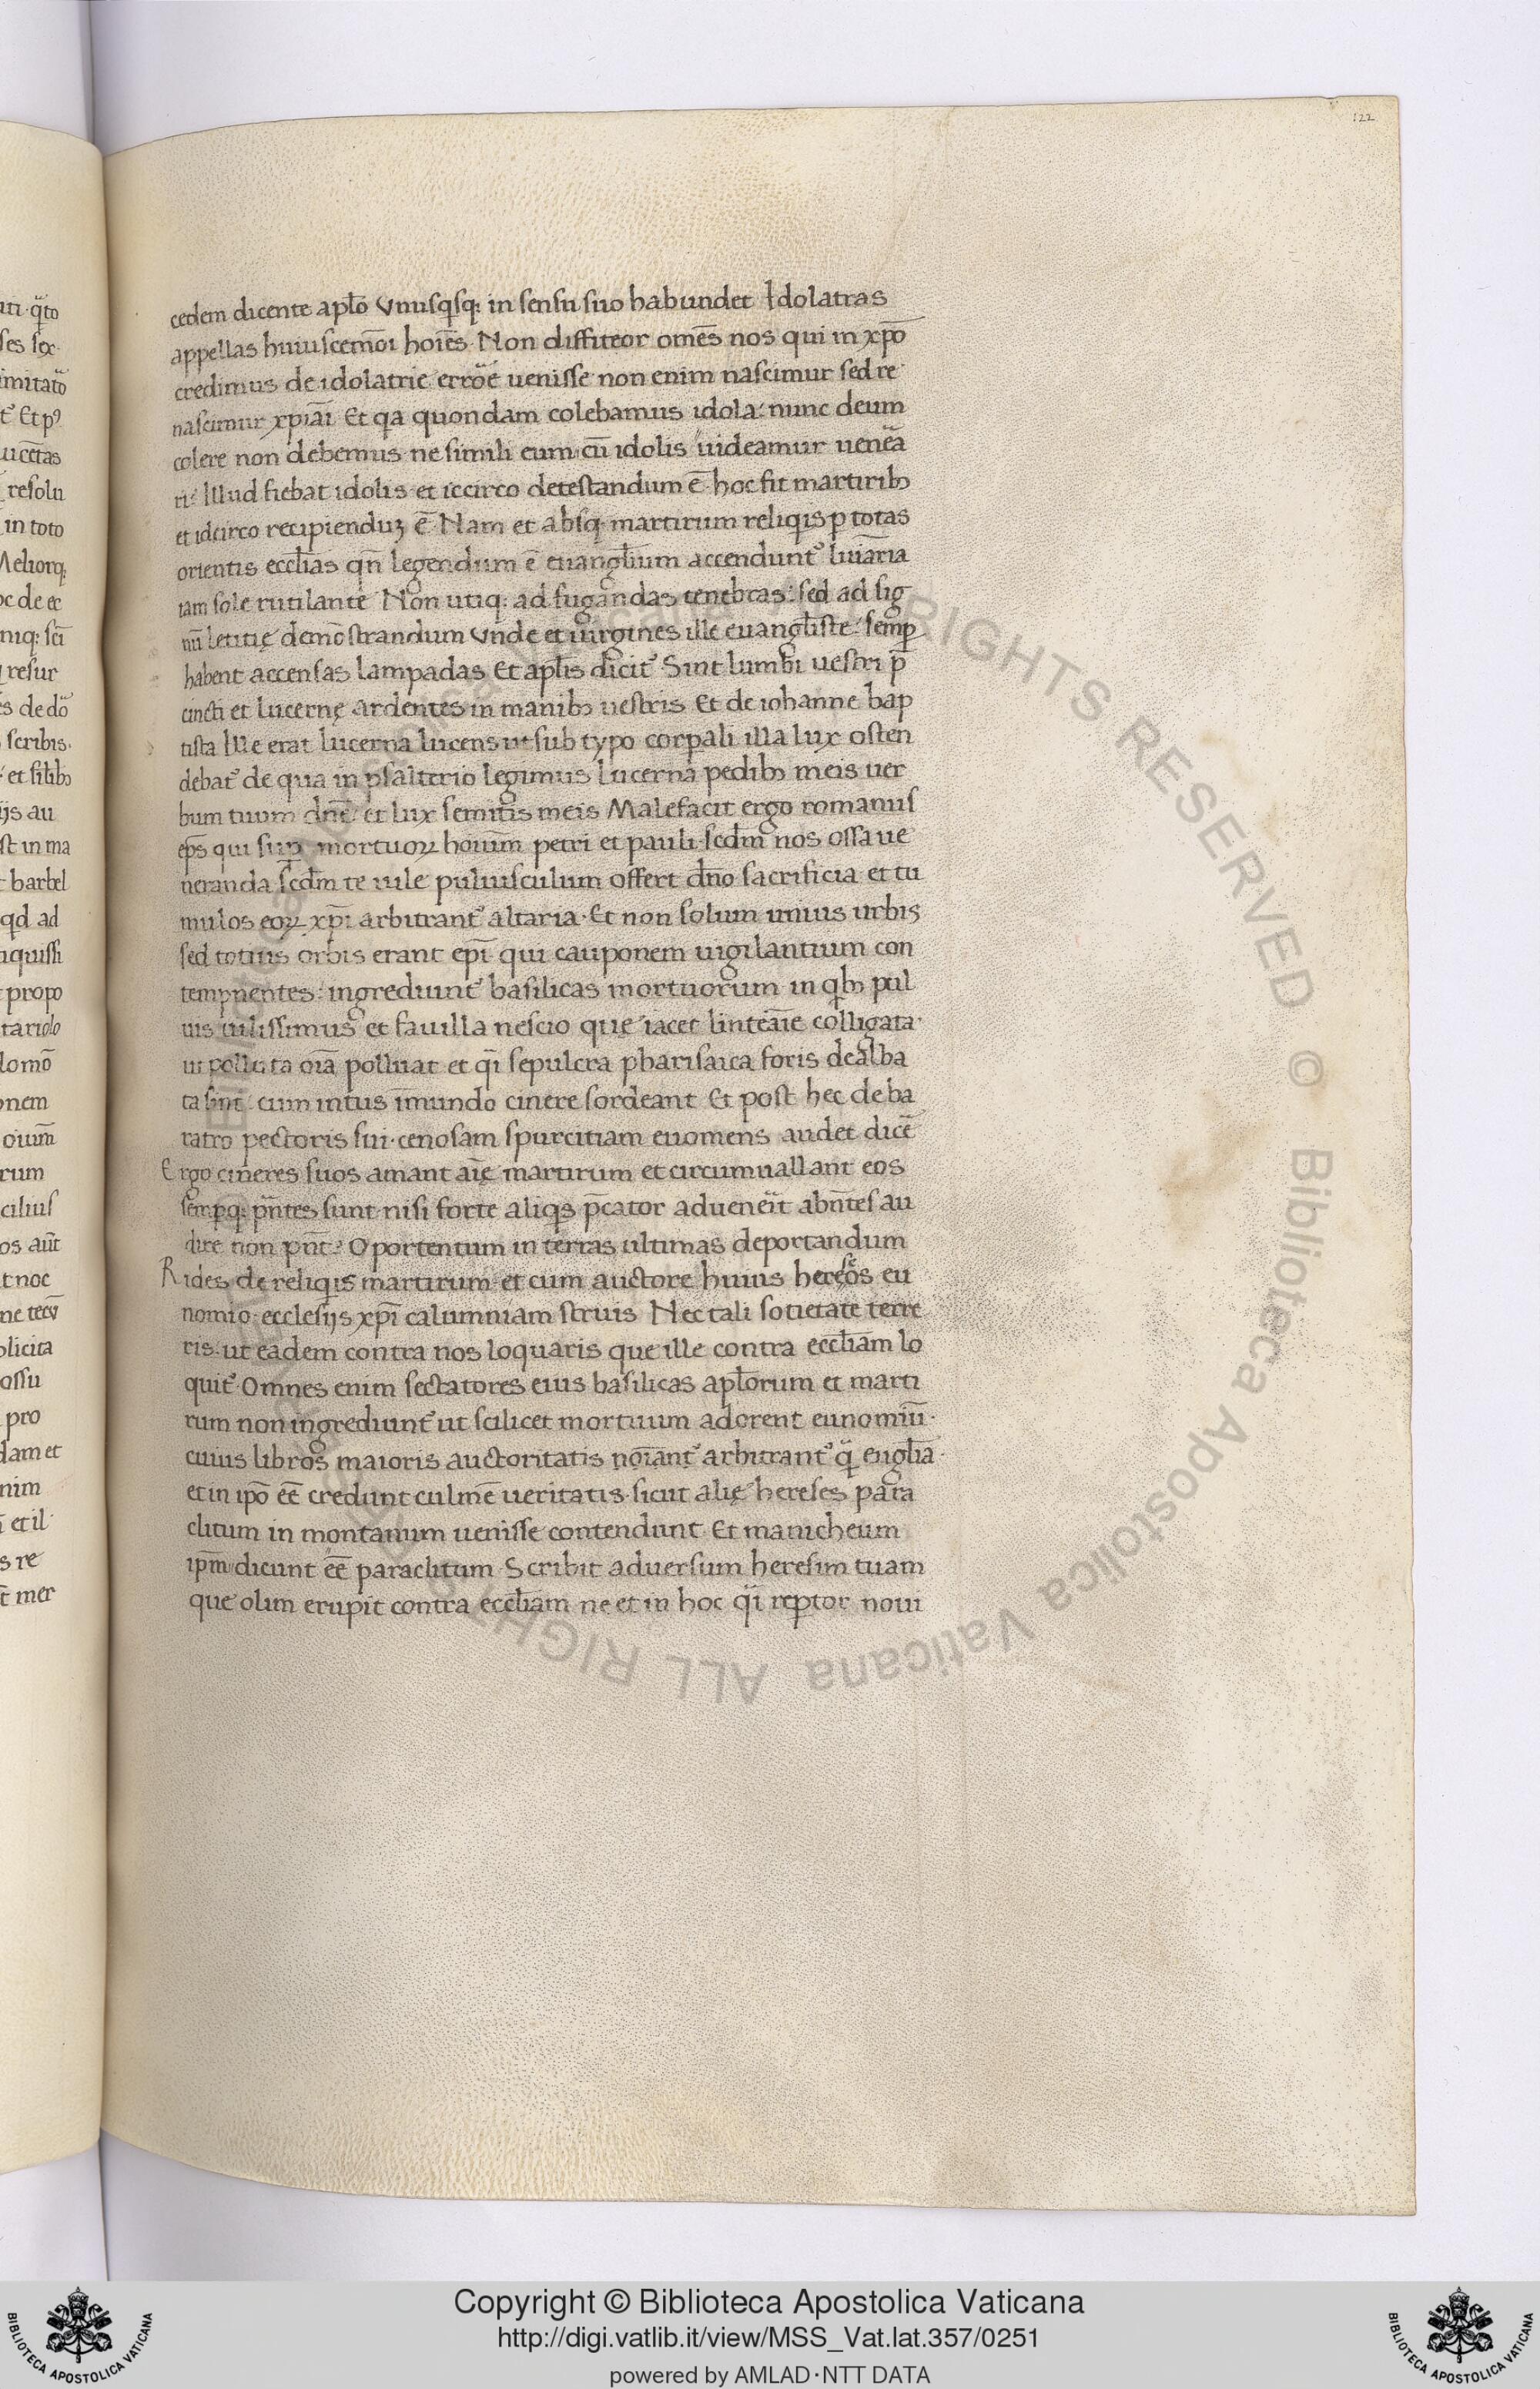 122
cedem dicente apl̄o Vnusqsq; in sensu suo habundet Idolatras
appellas huiuscemōi hoīes. Non diffiteor omēs nos qui in xp̄o
credimus de idolatrie errōe uenisse non enim nascimur sed re
nascimur xp̄iāi Et qa quondam colebamus idola: nunc deum
colere non debemus ne simili eum cū idolis uideamur uenēa
ri: Illud fiebat idolis et iccirco detestandum ē hoc fit martirib;
et idcirco recipienduȝ ē Nam et absq; martirum reliqis p totas
orientis ecclīas qn̄ legendum ē euangl̄ium accendunt᷒ luīaria
iam sole rutilante Non utiq; ad fugandas tenebras: sed ad sig
nū letitię demōstrandum Vnde et uirgines ille euangl̄iste: semp̲
habent accensas lampadas Et apl̄is dicit᷒ Sint lumbi uestri p̄
cincti et lucernę ardentes in manib; uestris Et de iohanne bap
tista Ille erat lucerna lucens ut sub typo corp̲ali illa lux osten
debat᷒ de qua in psalterio legimus Lucerna pedib; meis uer
bum tuum dn̄e: et lux semitis meis Malefacit ergo romanus
ep̄s qui sup̲ mortuoꝝ hoīum petri et pauli scd̄m nos ossa ue
neranda scd̄m te uile puluisculum offert dn̄o sacrificia et tu
mulos eoꝝ xp̄i arbitrant᷒ altaria. Et non solum unius urbis
sed totius orbis erant ep̄i qui cauponem uigilantium con
tempnentes: ingrediunt᷒ basilicas mortuorum in qb; pul
uis uilissimus et fauilla nescio que iacet linteāie colligata
ut polluta oīa polluat et qi sepulcra pharisaica foris dealba
ta sint: cum intus īmundo cinere sordeant Et post hec de ba
ratro pectoris sui cenosam spurcitiam euomens audet dicē
Ergo cineres suos amant aīę martirum et circumuallant eos
semp̲q; p̄ntes sunt nisi forte aliqs p̄cator adueneīt abn̄tes au
dire non pn̄t? O portentum in terras ultimas deportandum
Rides de reliqis martirum et cum auctore huius hereōs eu
nomio ecclesijs xp̄i calumniam struis Nec tali societate terre
ris: ut eadem contra nos loquaris que ille contra ecclīam lo
quit᷒ Omnes enim sectatores eius basilicas apl̄orum et marti
rum non ingrediunt᷒ ut scilicet mortuum adorent eunomiū
cuius libros maioris auctoritatis nōiant᷒ arbitrant᷒ q̄ euglīa
et in ip̄o eē credunt culmē ueritatis sicut alię hereses para
clitum in montanum uenisse contendunt Et manicheum
ip̄m dicunt eē paraclitum. Scribit aduersum heresim tuam
que olim erupit contra ecclīam ne et in hoc qi rep̲tor noui
Copyright © Biblioteca Apostolica Vaticana
http://digi.vatlib.it/view/MSS_Vat.lat.357/0251
powered by AMLAD·NTT DATA